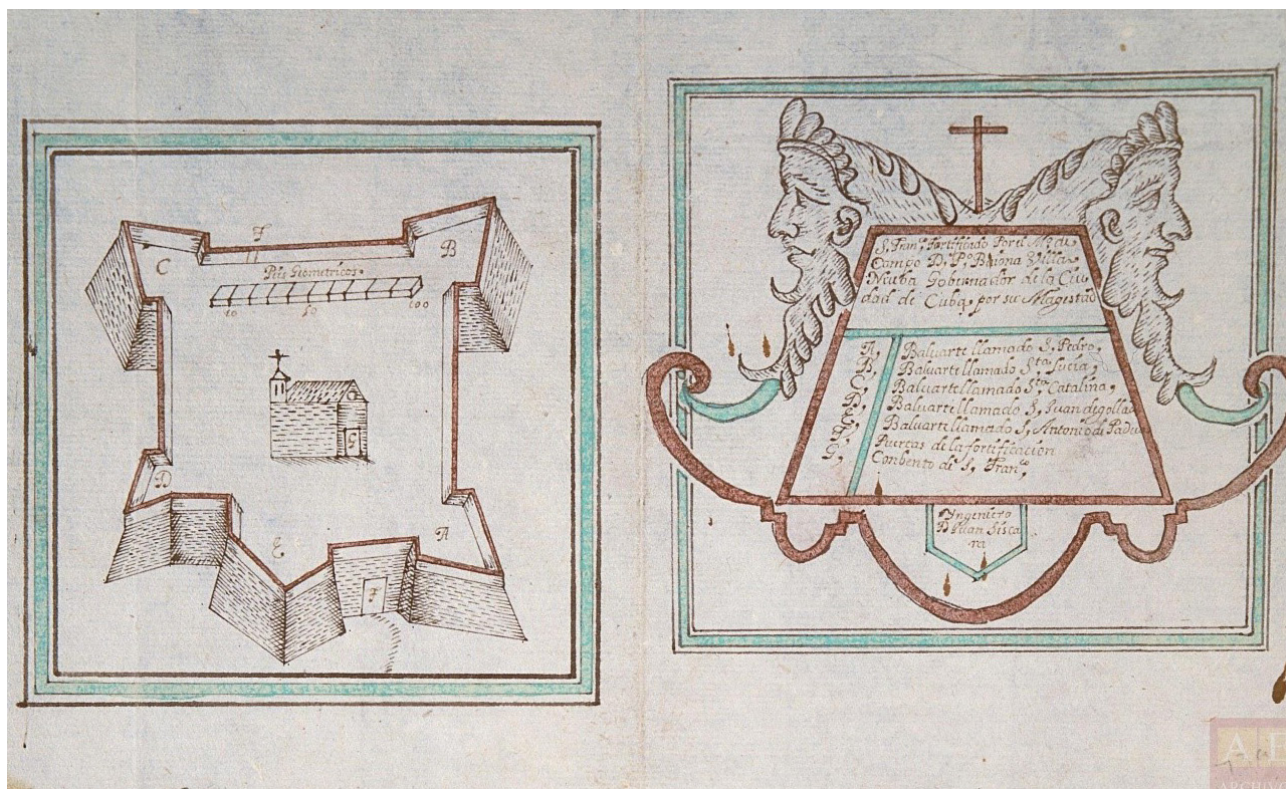 F
C
B
Pies Geometricos,
10
50
100
G
D
E
A
F
S, Franco, fortificado Por el Mo, de
Campo D, Po, Baiona Villa
Nueba Gobernador de la Ciu
dad de Cuba, por su Magestad
A, Baluarte llamado S, Pedro,
B, Baluarte llamado Sta, Lucia,
C, Baluarte llamado Sta, Catalina,
D, Baluarte llamado S, Juan degollad
E, Baluarte llamado S, Antonio de Padu
F, Puertas de la fortificacion
G, Conbento de S, Franco,
Yngeniero
D Juan Sísca
ra
A
ARCHIVO